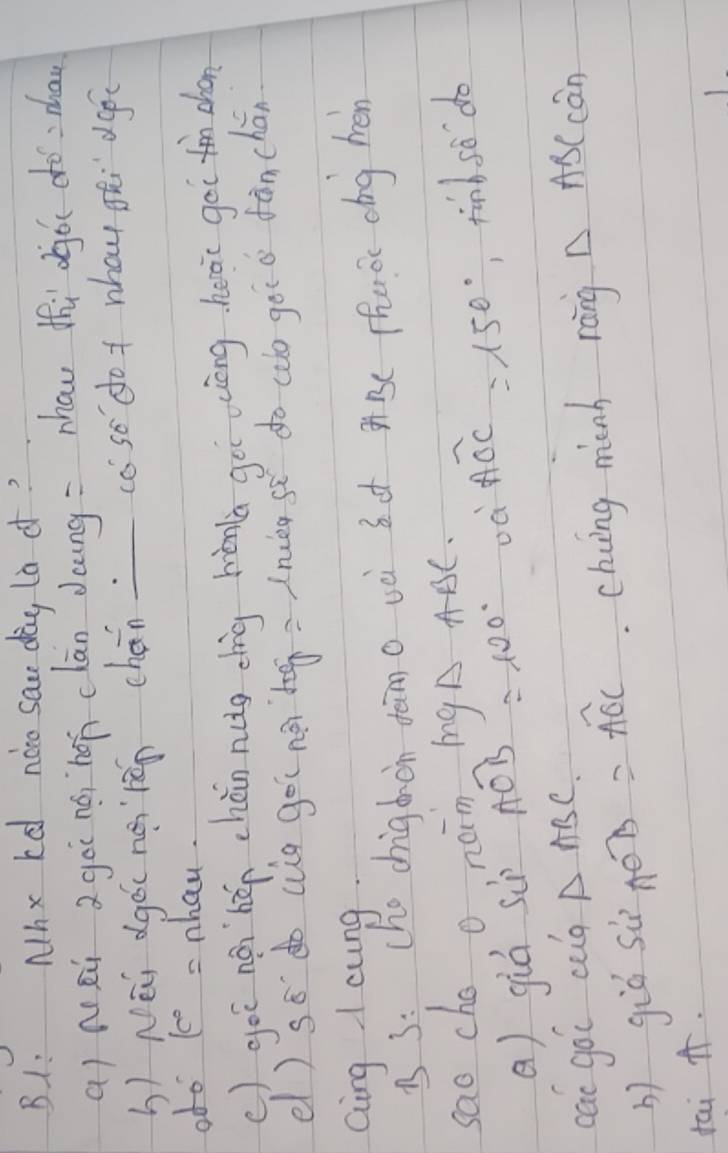 B1: Nhx kđ nào sau đây là đ?
a) Nếu 2 góc nội tiếp chắn 2 cung = nhau thì 2 góc đó = nhau
b) Nếu 2 góc nội tiếp chắn ——— có số đo ≠ nhau thì 2 góc
đó k° = nhau.
c) góc nội tiếp chắn nửa đng tròn là góc vuông hoặc góc nhọn
d) số đo của góc nội tiếp = 1 nửa số đo của góc ở tâm, chắn
cùng 1 cung.
B3: Cho đng tròn tâm O và 3 đ ABC thuộc đng tròn
sao cho O nằm trg Δ ABC.
a) giả sử AÔB = 120° và AÔC = 150°, tính số đo
các góc của Δ ABC.
b) giả sử AÔB = AÔC. Chứng minh rằng Δ ABC cân
tại A.